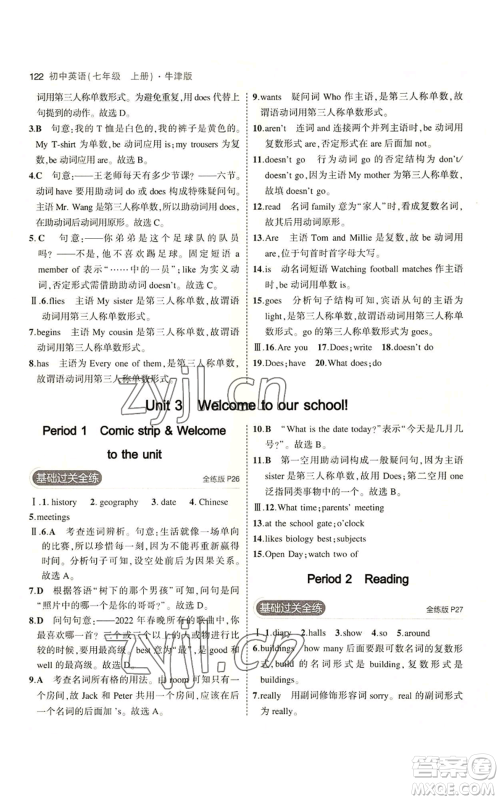 122 初中英语(七年级 上册)·牛津版
词用第三人称单数形式。为避免重复,用 does 代替句中
提到的动作。故选 D。
3.B 句意:我的 T 恤是白色的,我的裤子是黄色的。
My T-shirt 为单数,be 动词用 is;my trousers 为复
数,be 动词用 are。故选 B。
4.C 句意:——王老师每天有多少节课?——两节。
主语 Mr. Wang 是第三人称单数,所以助动词用 does,
在助动词后动词用原形。故选 C。
5.C 句意:——你弟弟是这个足球队的队员
吗?——是的,但他不喜欢踢足球。固定短语 a
member of 表示“……中的一员”;like 为实义动
词,否定形式需借助助动词 doesn't。故选 C。
Ⅱ.6.flies 主语 My sister 是第三人称单数,故谓语动
词用第三人称单数形式。
7.begins 主语 My cousin 是第三人称单数,故谓语
动词用第三人称单数形式。
8.has 主语 Everyone in our class 是第三人称单数,
故谓语动词用第三人称单数形式。
9.wants 疑问词 Who 作主语,是第三人称单数,故
谓语动词用第三人称单数形式。
10.aren't 连词 and 连接并列主语时,be 动词用复数
形式。
11.doesn't go 行为动词 go 的否定结构为 don't/
doesn't go。主语 He 是第三人称单数,所以用 does。
故填 doesn't go。
12.read 名词 family 意为“家人”时,看成复数名词,
故谓语动词用复数形式。
13.Are 主语 Tom and Millie 是复数,故 be 动词用
are,位于句首时首字母大写。
14.is 动名词短语 Watching football matches 作主语
时,be 动词用 is。
15.goes 分析句子结构可知,此句为主语从句,主语为
light,是第三人称单数,故谓语动词用第三人称单
数形式。
Ⅲ.16.Are you 17.Does;play 18.isn't
19.Does;have 20.What does;do
Unit 3 Welcome to our school!
Period 1 Comic strip & Welcome
to the unit
基础过关全练 全练版 P26
Ⅰ.1. history 2. geography 3. date 4. Chinese
5.meetings
Ⅱ.6.A 考查连词辨析。句意:他们没有时间参加那样
的比赛,所以珍惜每一刻,因为时间一去不复返。
故选 A。
7.D 根据答语“树下的那个男孩”可知,问句是问
“照片中的哪一个是你”。故选 D。
8.D 句意:——2022 年春晚所有的歌曲中,你
最喜欢哪一首? 三个或三个以上的人或物进行
比较时,形容词或副词要用最高级,best 是 good 和
well 的最高级。故选 D。
9.A 考查名词所有格的用法。由 room 可知只有一
个房间,故 Jack 和 Peter 共用一个房间,应在最后
一个名词的后面加 's。故选 A。
10.B “What is the date today?”表示“今天是几月几
号?”故选 B。
11.B 第一空用助动词构成一般疑问句,因为主语
sister 是第三人称单数,故用 Does。第二空用
动词原形。故选 B。
Ⅲ.12.What time;parents' meeting
13.at the school gate;o'clock
14.likes biology best;subjects
15.Open Day;watch two of
Period 2 Reading
基础过关全练 全练版 P27
Ⅰ.1.diary 2.halls 3.show 4.so 5.around
6.buildings how many 后面要跟可数名词的复数形
式,build 的名词形式是 building,复数形式是
buildings。
7.really 用副词修饰形容词 sorry。real 的副词形式
为 really。
zyjl.cn
zyjl.cn